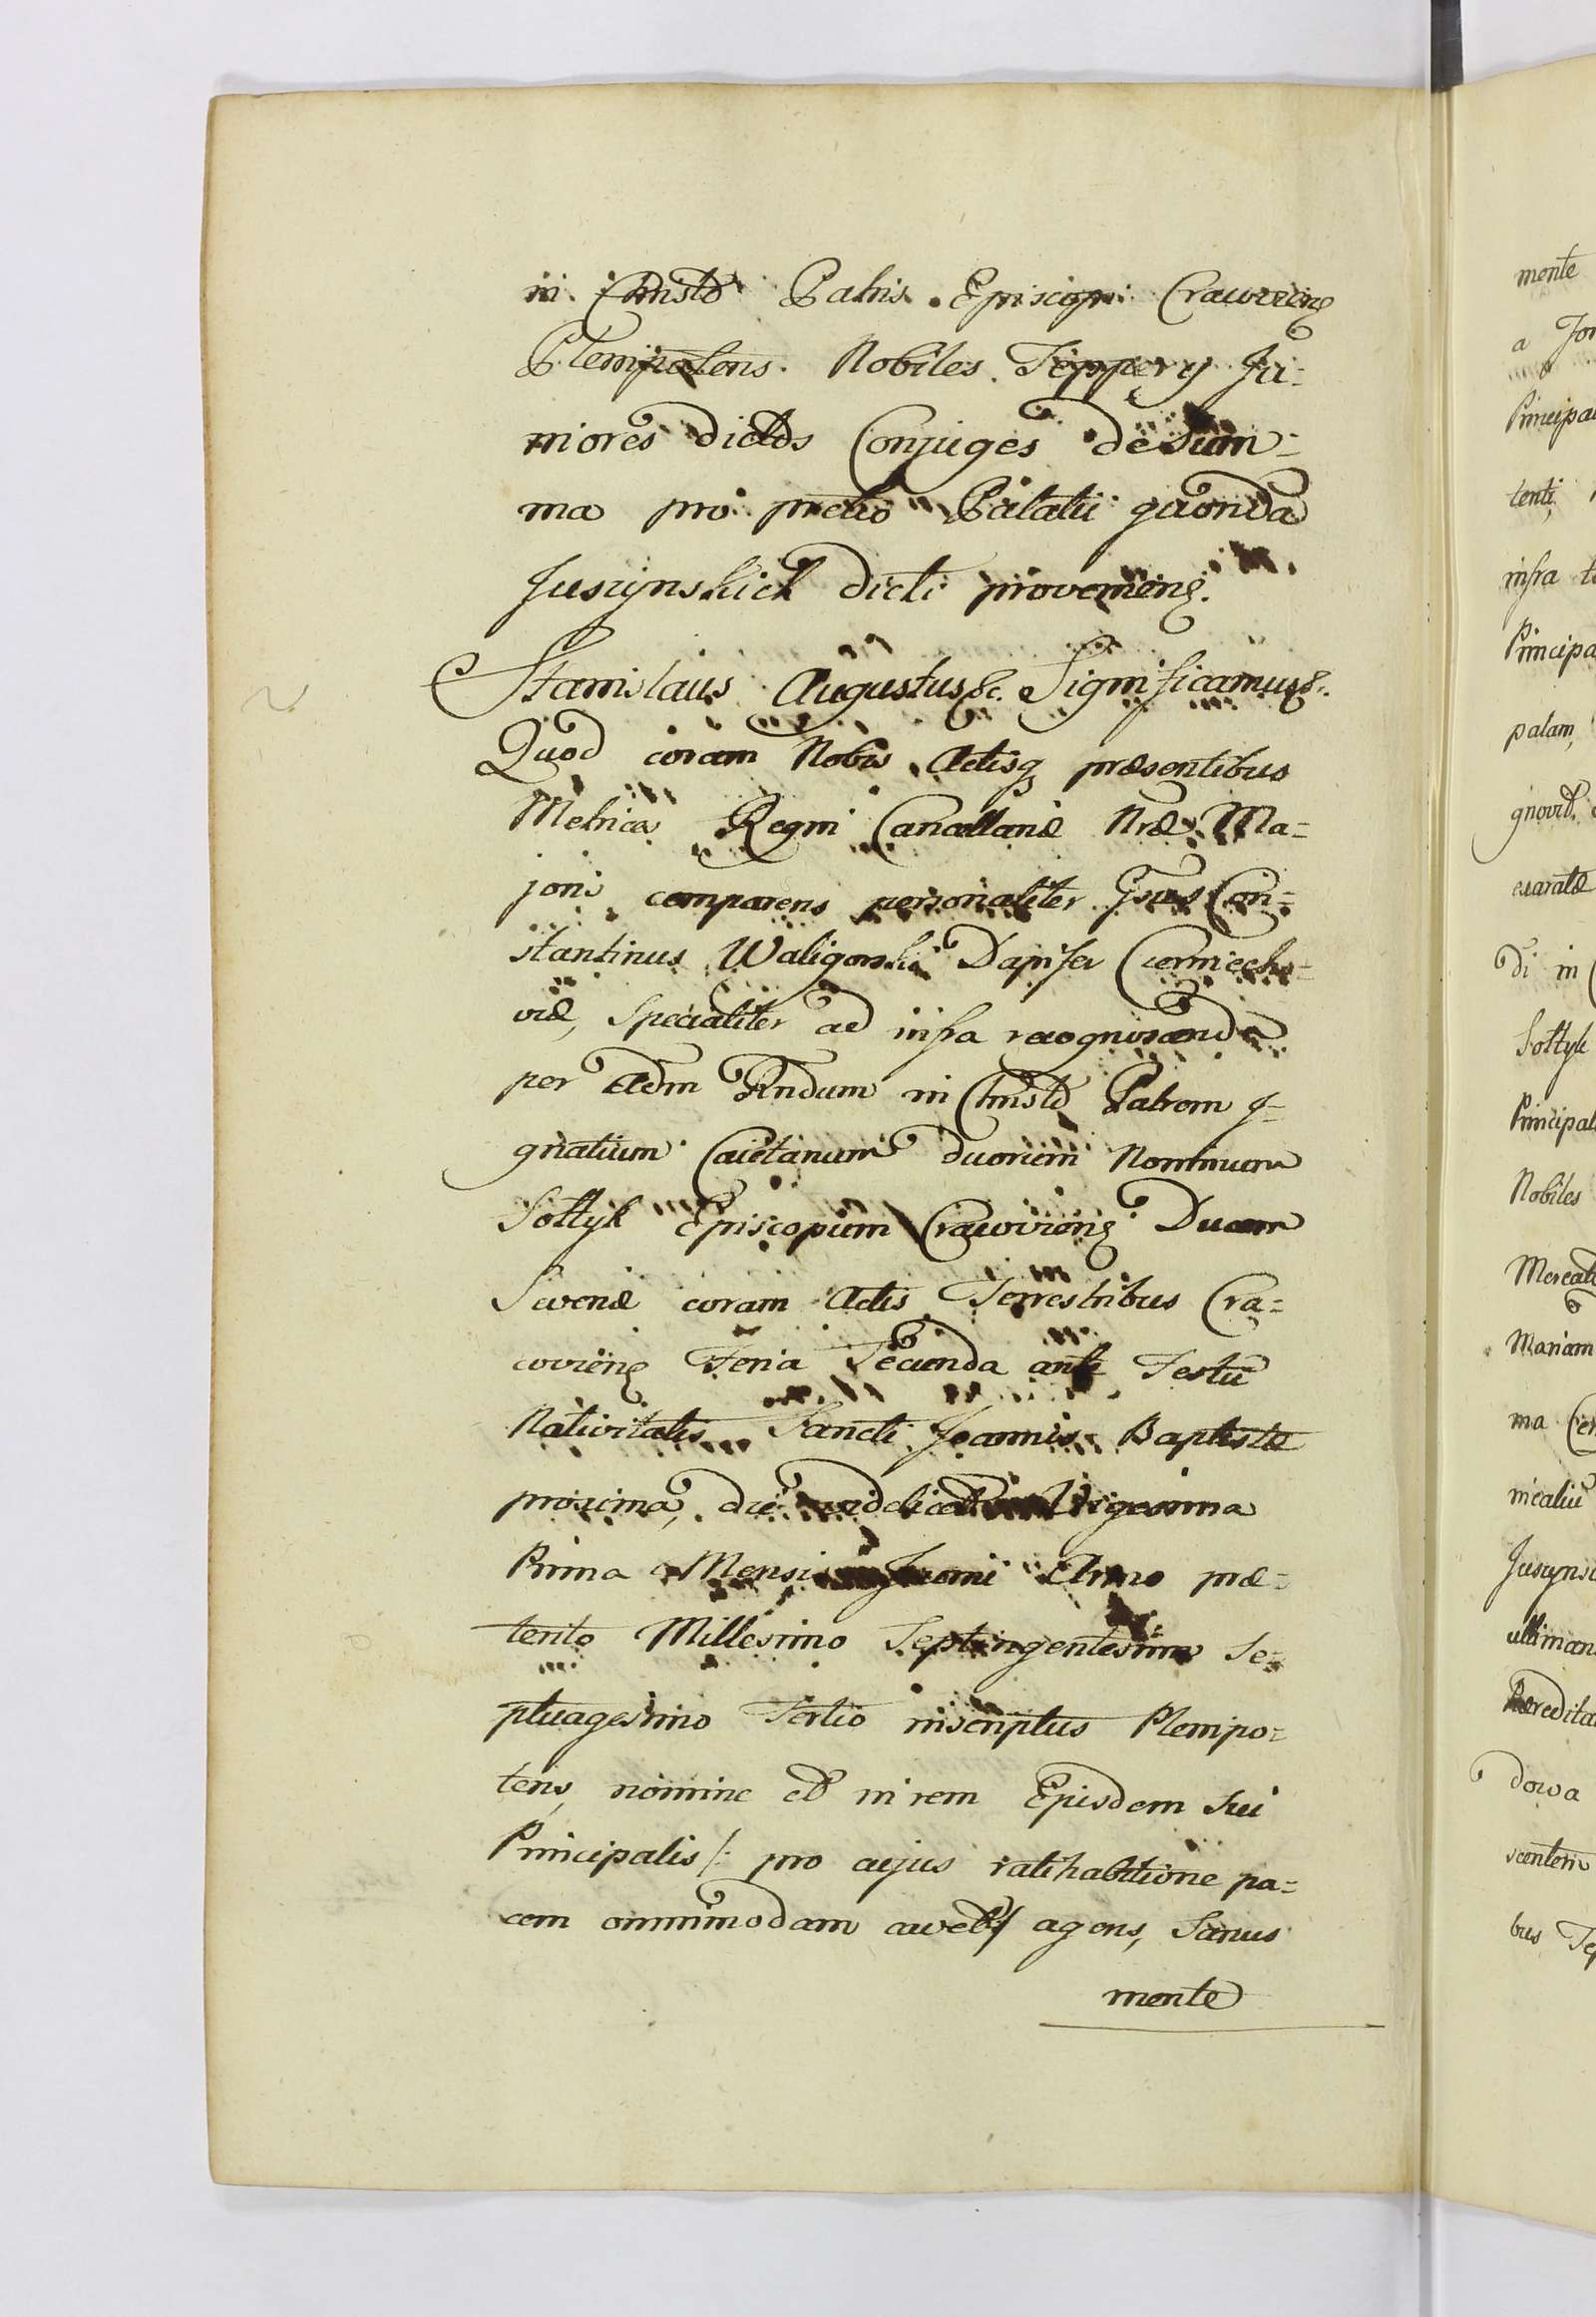 in Christo Patris Episcopi Cracovieng
Plenipotens. Nobiles Teppery Ju=
niores dictos Conjuges de Sum=
ma pro pretio Palatii quonda
Juszynskich dicti provenieng.
Stanislaus Augustus &c. Significamus &c.
Quod coram Nobis Actisq presentibus
Metrica Regni Cancellariæ Nræ Ma=
joris comparens personaliter Gsus Con=
stantinus Waligorski Dapifer Czerniecho=
viæ, Specialiter ad infra recognoscenda
per Adm Rndum in Christo Patrem J=
gnatium Caietanum duorum Nominum
Sołtyk Episcopum Cracovieng Ducem
Severiæ coram Actis Terrestribus Cra=
covieng Feria Secunda ante Festū
Nativitatis Sancti Joannis Baptistæ
proxima, die videlicet Vigesima
Prima Mensis Junii Anno præ=
terito Millesimo Septingentesimo Se=
ptuagesimo Tertio inscriptus Plenipo=
tens, nomine et in rem Ejusdem Sui
Principalis /: pro cujus ratihabitione pa=
cem omnimodam cavet :/ agens, Sanus
mente
mente
a
Principal
tenti
infra
Principa
palam,
gnovit
exaratæ
di in
Sołtyk
Principal
Nobiles
Mercat
Mariam
ma
Jusyns
ultiman
Hæredita
dowa
bus